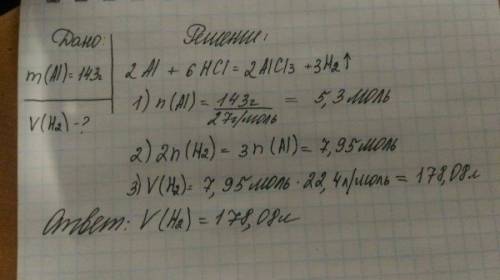 Дано:
m(Al)=143г
V(H₂)-?
Решение:
2Al + 6HCl = 2AlCl₃ + 3H₂↑
1) n(Al) = 143г / 27г/моль = 5,3 моль
2) 2n(H₂) = 3n(Al) = 7,95моль
3) V(H₂) = 7,95моль · 22,4л/моль = 178,08л
Ответ: V(H₂) = 178,08л